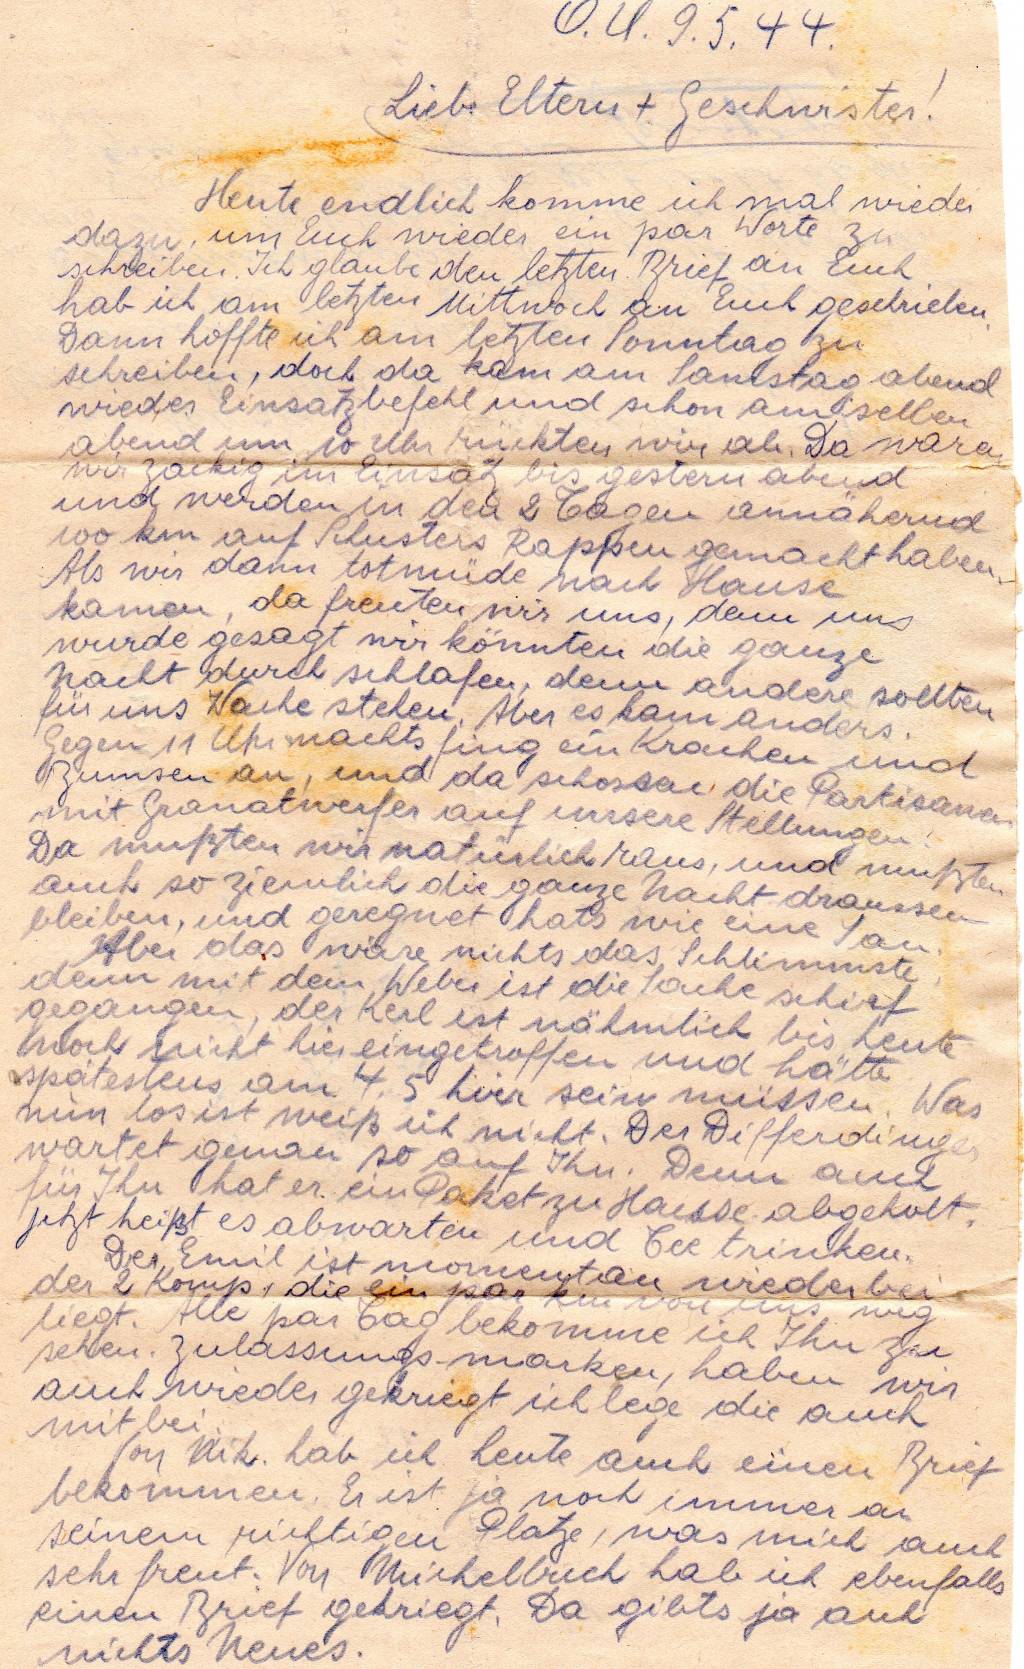 O.U. 9.5.44.
Liebe Eltern + Geschwister!
Heute endlich komme ich mal wieder
dazu, um Euch wieder ein par Worte zu
schreiben. Ich glaube den letzten Brief an Euch
hab ich am letzten Mittwoch an Euch geschrieben.
Dann hoffte ich am letzten Sonntag zu
schreiben, doch da kam am Samstag abend
wieder Einsatzbefehl und schon am selben
abend um 10 Uhr rückten wir ab. Da waren
wir zackig im Einsatz bis gestern abend
und werden in den 2 Tagen annähernd
100 km auf Schusters Rappen gemacht haben.
Als wir dann totmüde nach Hause
kamen, da freuten wir uns, denn uns
wurde gesagt wir könnten die ganze
Nacht durch schlafen, denn andere sollten
für uns Wache stehen. Aber es kam anders.
Gegen 11 Uhr nachts fing ein Krachen und
Bumsen an, und da schossen die Partisanen
mit Granatwerfer auf unsere Stellungen!
Da mußten wir natürlich raus, und mußten
auch so ziemlich die ganze Nacht draussen
bleiben, und geregnet hats wie eine Sau.
Aber das wäre nichts das Schlimmste,
denn mit dem Weber ist die Sache schief
gegangen, der Kerl ist nähmlich bis heute
noch nicht hier eingetroffen und hätte
spätestens am 4.5 hier sein müssen. Was
nun los ist weiß ich nicht. Der Differdinger
wartet genau so auf Ihn. Denn auch
für Ihn hat er ein Paket zu Hause abgeholt.
jetzt heißt es abwarten und Tee trinken.
Der Emil ist momentan wieder bei
der 2 Komp, die ein par km von uns weg
liegt. Alle par Tag bekomme ich Ihn zu
sehen. Zulassungs-marken, haben wir
auch wieder gekriegt ich lege die auch
mit bei.
Von Nik. hab ich heute auch einen Brief
bekommen. Er ist ja noch immer an
seinem richtigen Platze, was mich auch
sehr freut. Von Michelbuch hab ich ebenfalls
einen Brief gekriegt. Da gibts ja auch
nichts Neues.